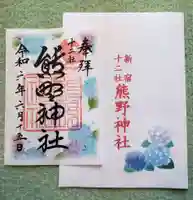 奉拝
十二社
熊野神社
令和二年六月十五日
新宿
十二社
熊野神社